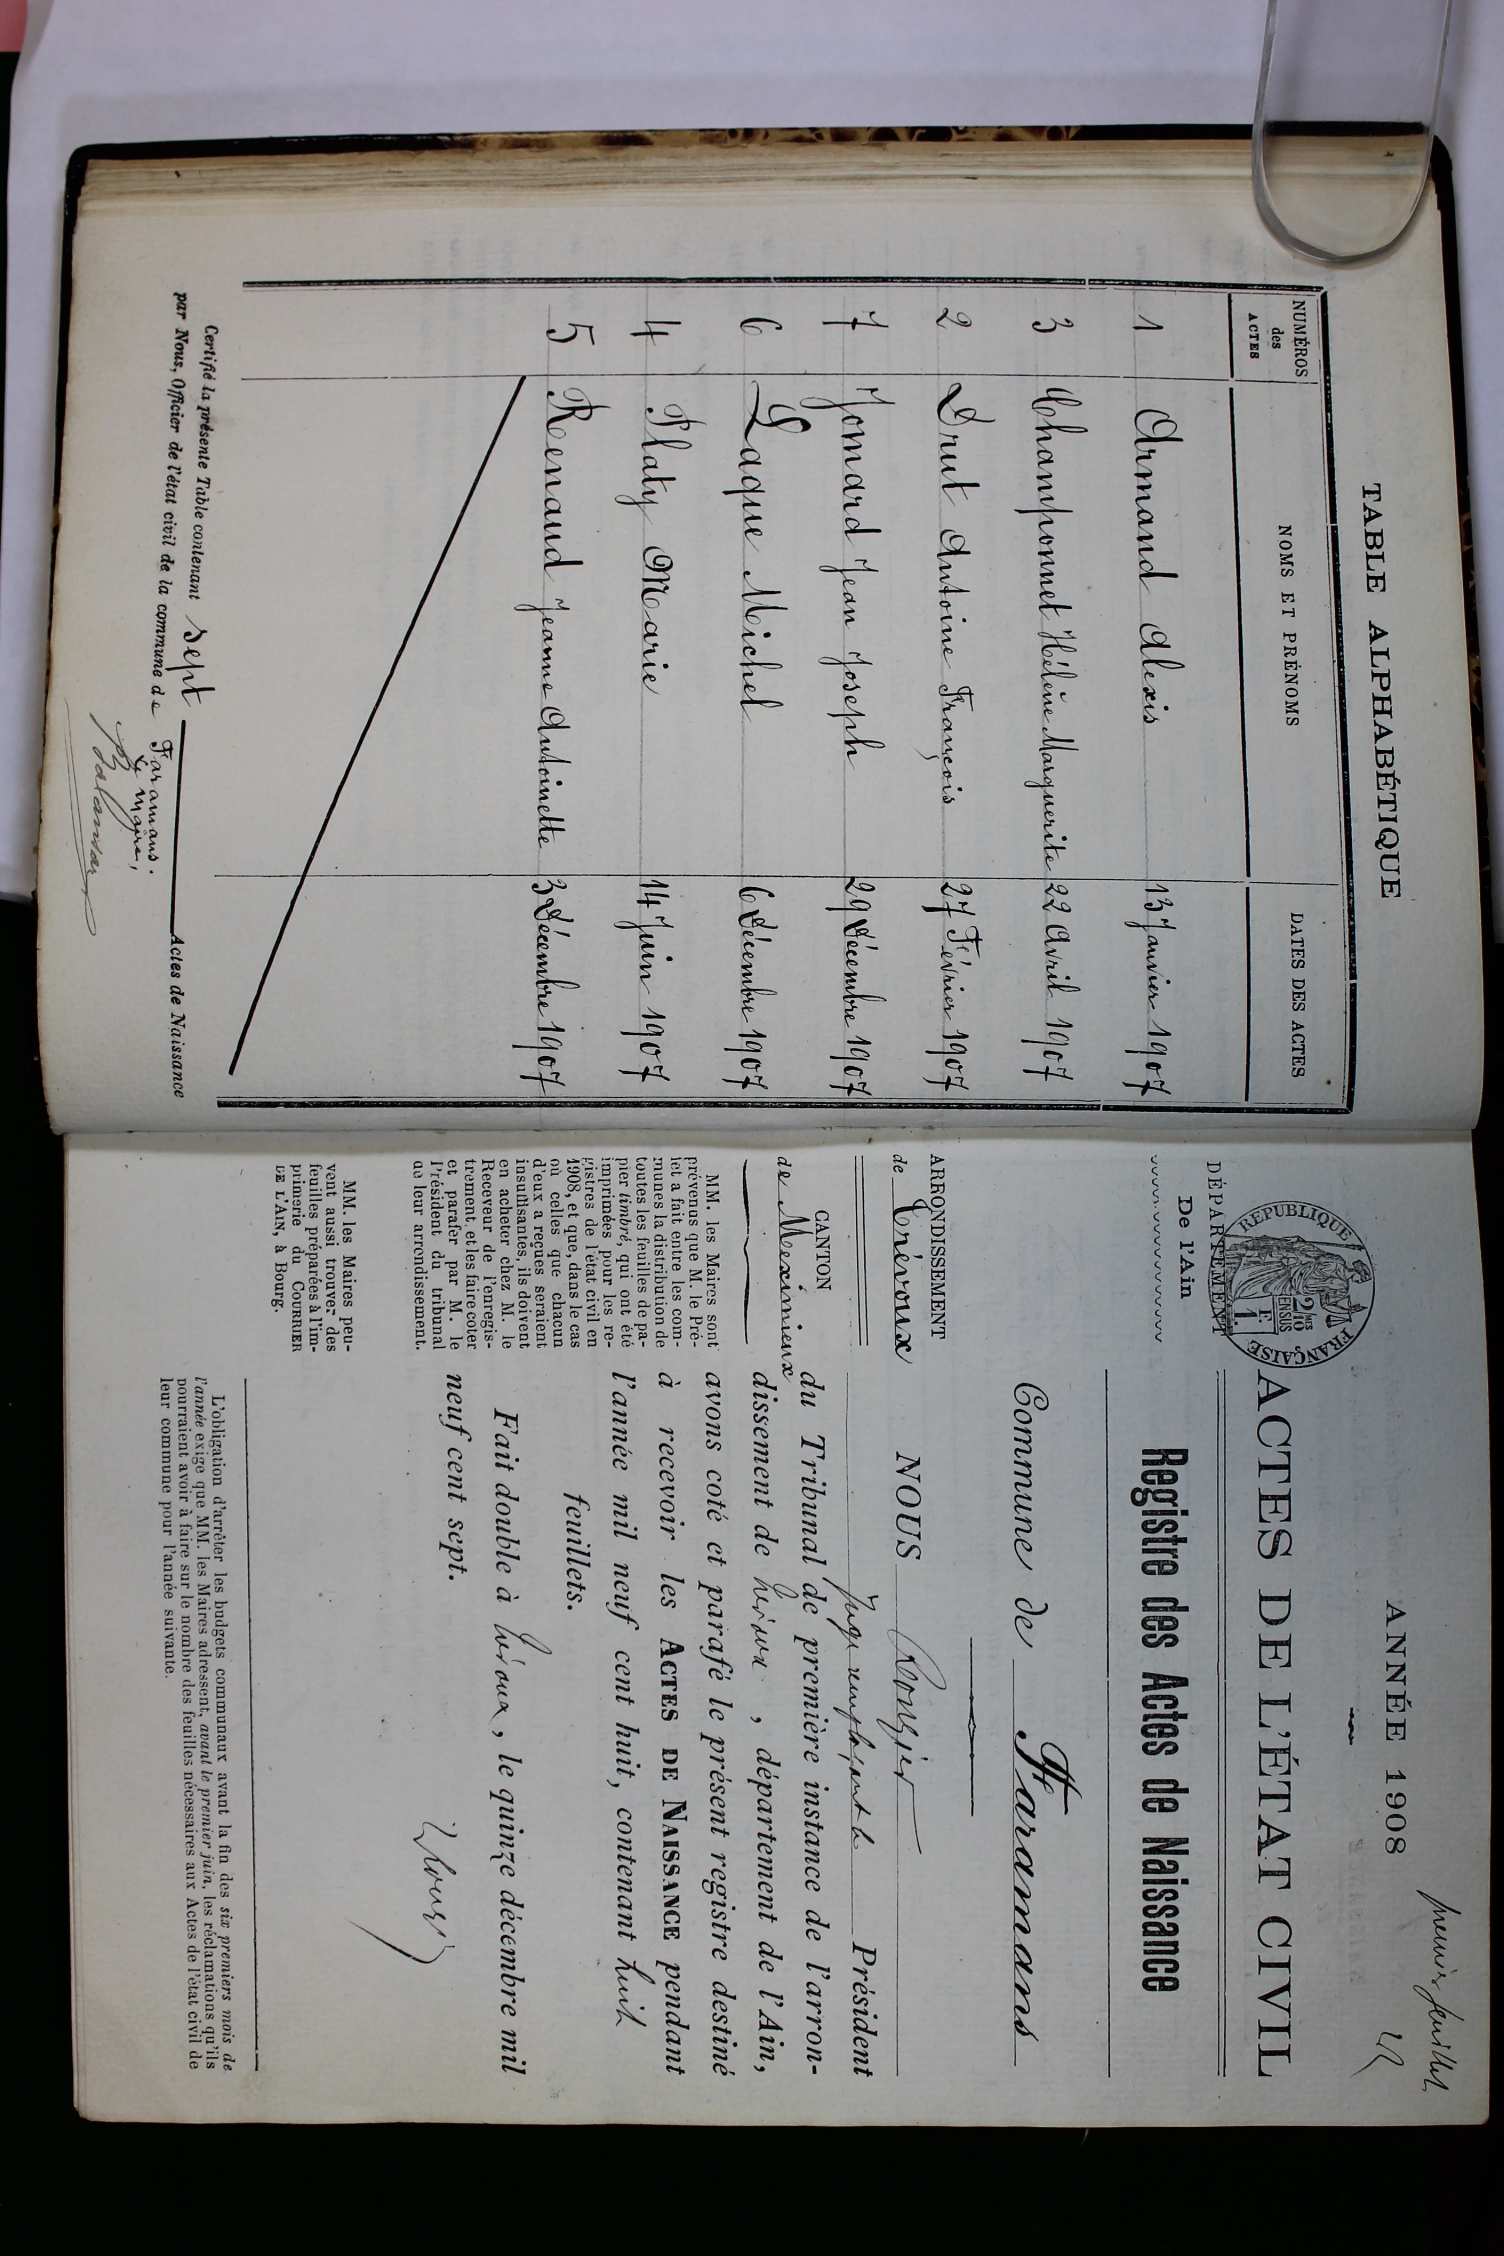 TABLE ALPHABÉTIQUE
NUMÉROS des ACTES
NOMS ET PRÉNOMS
DATES DES ACTES
1 Armand Alexis 13 Janvier 1907
3 Champonnet Hélène Marguerite 22 Avril 1907
2 Drut Antoine François 27 Février 1907
7 Jomard Jean Joseph 29 Décembre 1907
6 Laque Michel 6 Décembre 1907
4 Platy Marie 14 Juin 1907
5 Renaud Jeanne Antoinette 3 Décembre 1907
Certifié la présente Table contenant sept Actes de Naissance
par Nous, Officier de l'état civil de la commune de Faramans.
Le Maire,
premier feuillet
ANNÉE 1908
RÉPUBLIQUE FRANÇAISE
2/10 EN SUS
1 F.
DÉPARTEMENT
De l'Ain
ARRONDISSEMENT
de Trévoux
CANTON
de Meximieux
MM. les Maires sont
prévenus que M. le Pré-
fet a fait entre les com-
munes la distribution de
toutes les feuilles de pa-
pier timbré, qui ont été
imprimées pour les re-
gistres de l'état civil en
1908, et que, dans le cas
où celles que chacun
d'eux a reçues seraient
insuffisantes, ils doivent
en acheter chez M. le
Receveur de l'enregis-
trement, et les faire coter
et parafer par M. le
Président du tribunal
de leur arrondissement.
MM. les Maires peu-
vent aussi trouver des
feuilles préparées à l'im-
primerie du COURRIER
DE L'AIN, à Bourg.
ACTES DE L'ÉTAT CIVIL
Registre des Actes de Naissance
Commune de Faramans
NOUS
Juge remplaçant le Président
du Tribunal de première instance de l'arron-
dissement de Trévoux, département de l'Ain,
avons coté et parafé le présent registre destiné
à recevoir les ACTES DE NAISSANCE pendant
l'année mil neuf cent huit, contenant huit
feuillets.
Fait double à Trévoux, le quinze décembre mil
neuf cent sept.
L'obligation d'arrêter les budgets communaux avant la fin des six premiers mois de
l'année exige que MM. les Maires adressent, avant le premier juin, les réclamations qu'ils
pourraient avoir à faire sur le nombre des feuilles nécessaires aux Actes de l'état civil de
leur commune pour l'année suivante.